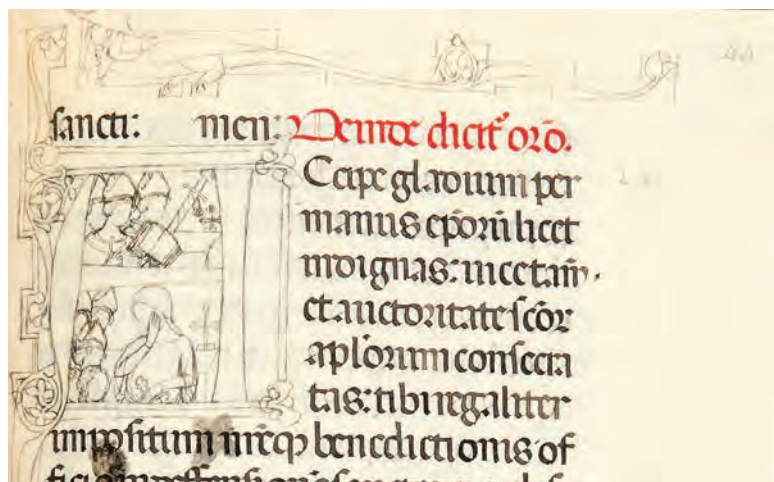 sancti: men: Deinde dicit' orõ.
Ccipe gladium per
manus ep̃orũ licet
indignas: uice tam̃.
et auctoritate scõr
apl̃orum consecra
tas: tibi regaliter
impositum nr̃eqꝫ benedictionis of